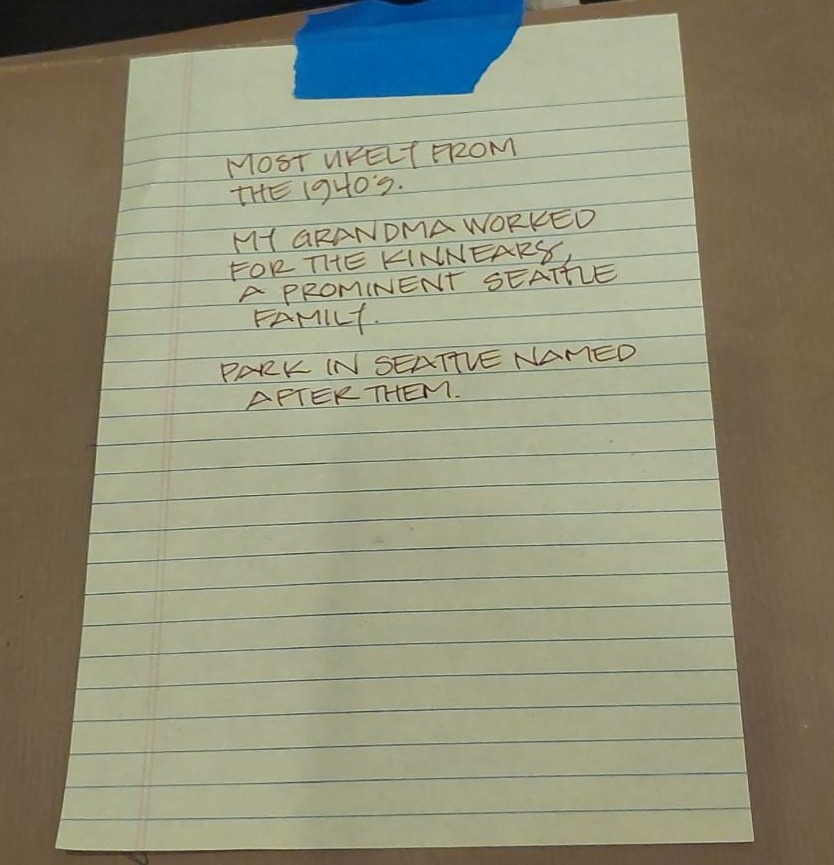 MOST LIKELY FROM
THE 1940'S.
MY GRANDMA WORKED
FOR THE KINNEARS,
A PROMINENT SEATTLE
FAMILY.
PARK IN SEATTLE NAMED
AFTER THEM.